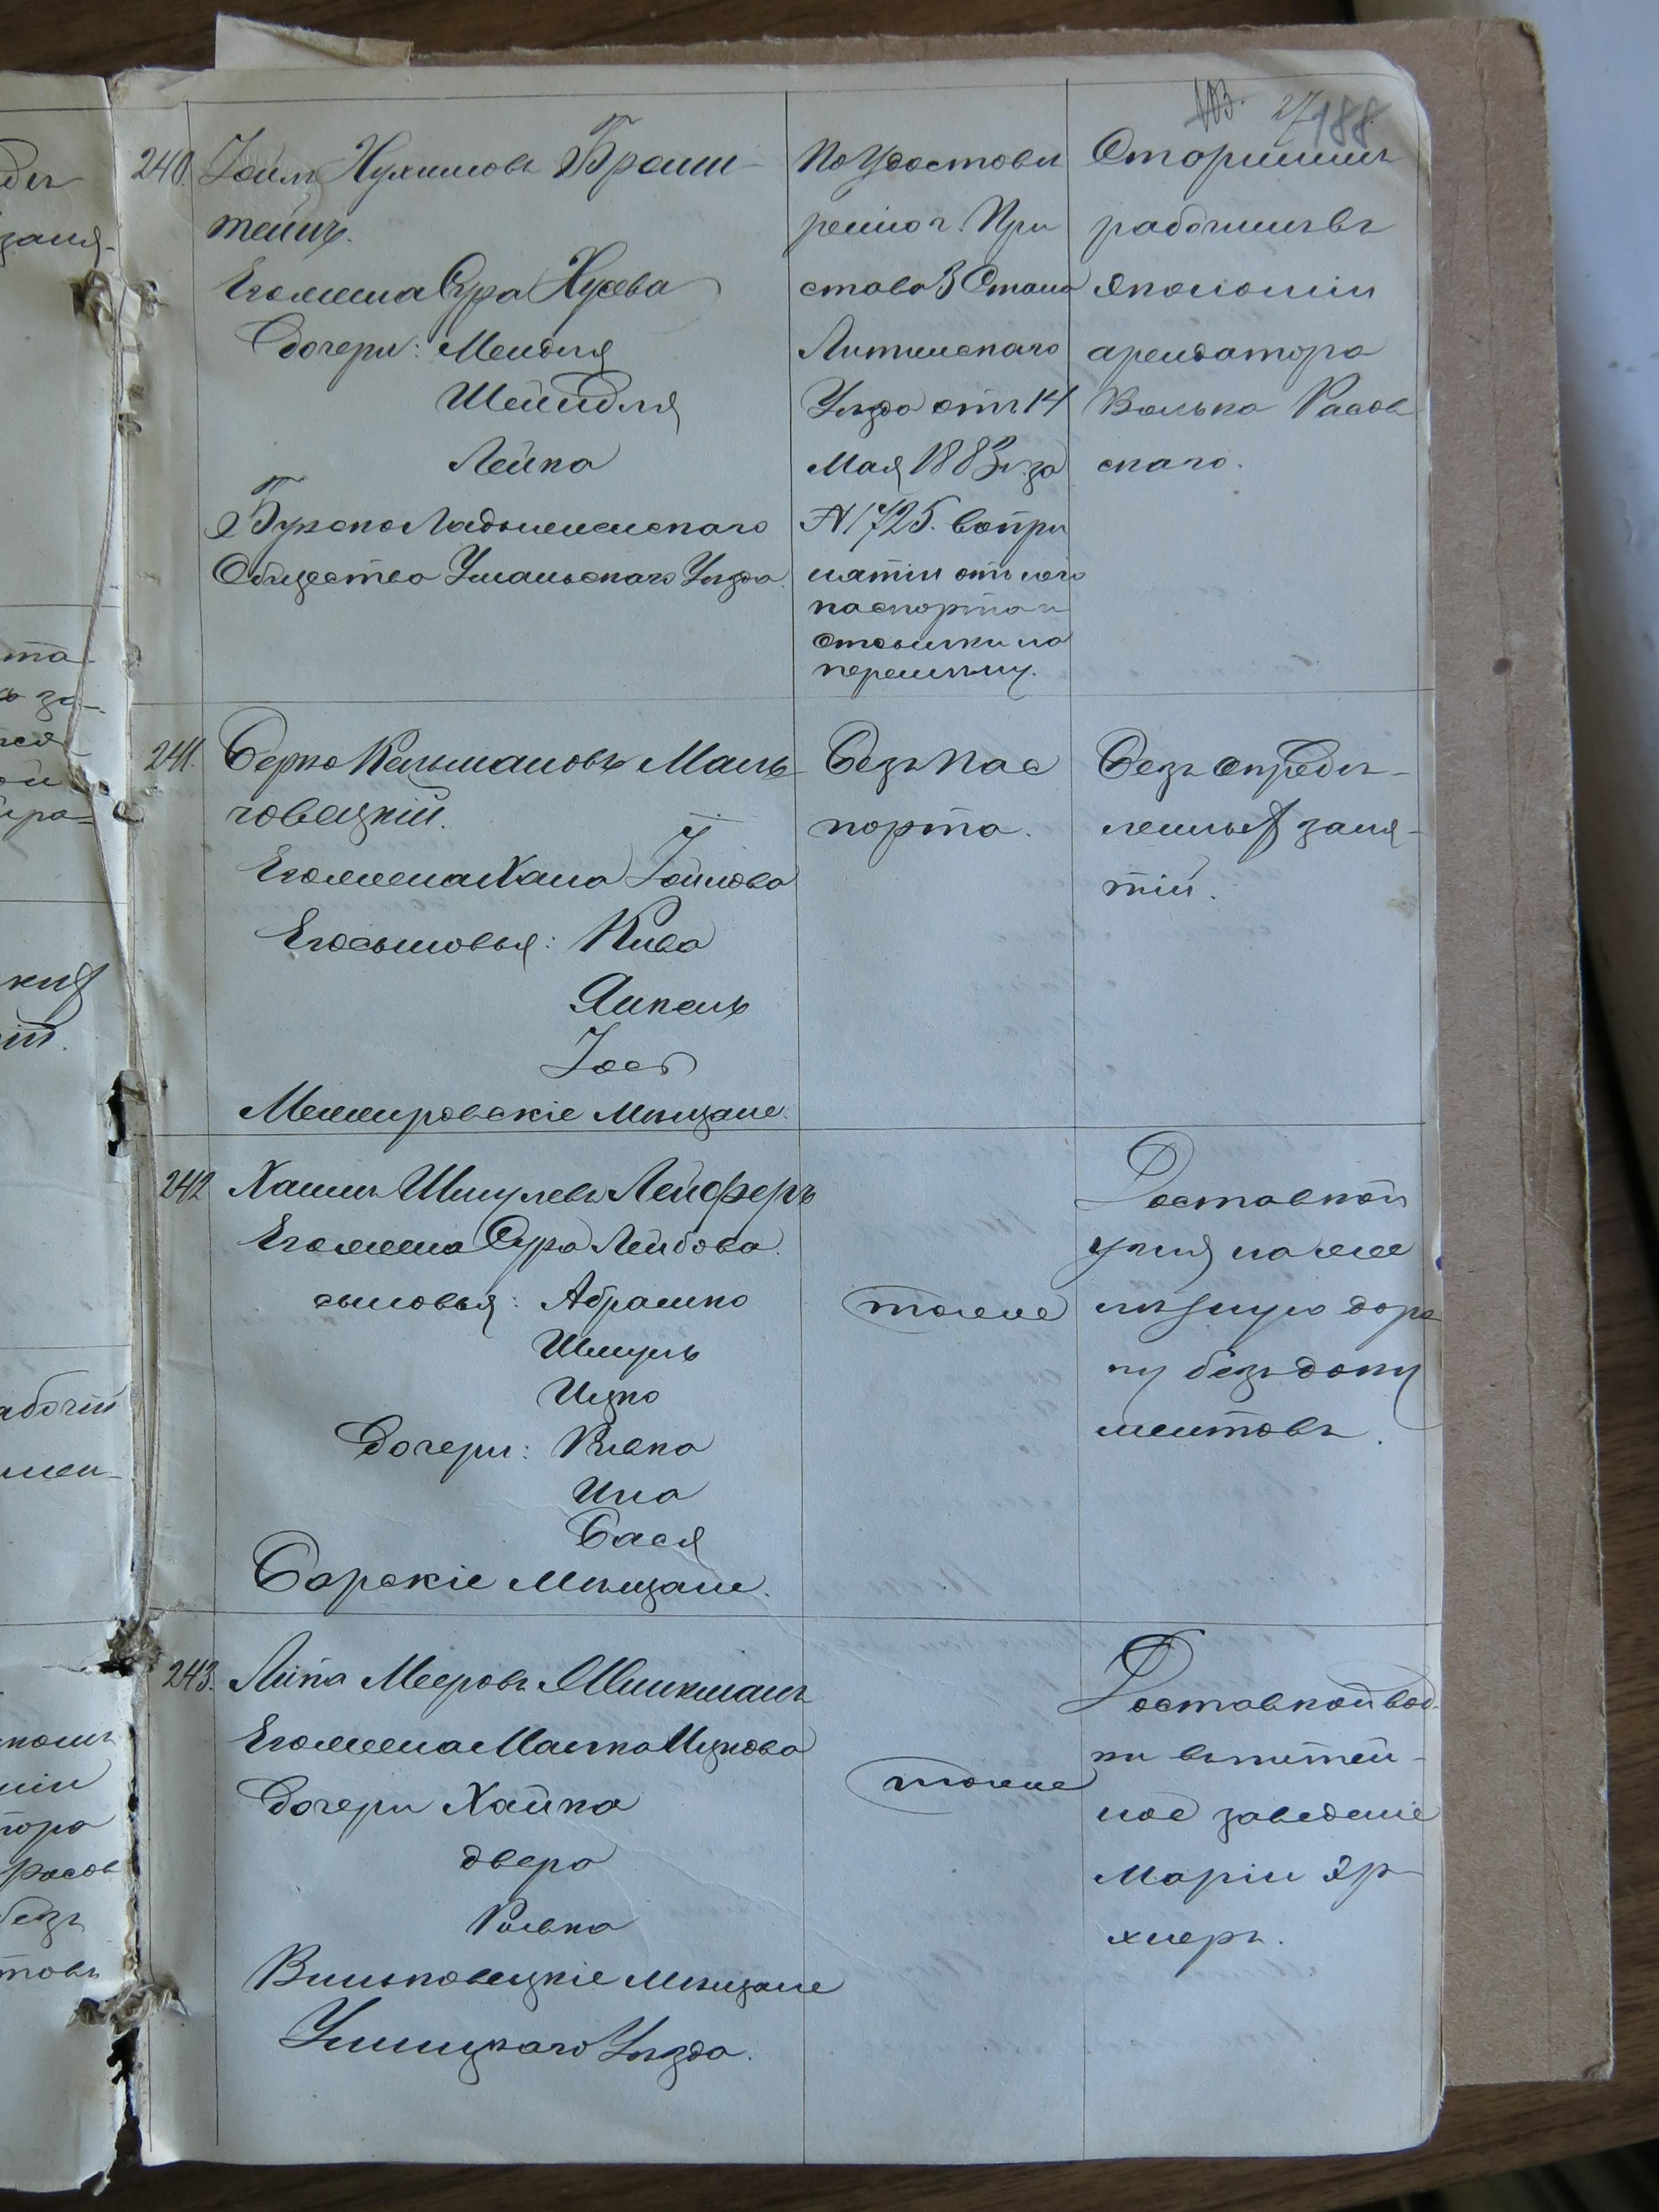 188
240. Хаим Нухимовъ Бронш-
тейнъ.
Его жена Сура Нусева
Дочери: Мендля
Шейндля
Лейка
Бугско Ладыженскаго
Общества Уманьскаго Уѣзда.
По Удостовѣ
ренію г. При
става 3 Стана
Литинскаго
Уѣзда отъ 14
Мая 1883 г. за
№ 1725. въ при
нятіи отъ него
паспорта и
отсылки на
перемѣну.
Сторишимъ
рабочимъ въ
экономіи
арендатора
Волька Расов
скаго.
241. Берко Кельмановъ Маль-
човецкій.
Его жена Хана Іойнова
Его сыновья: Кива
Янкель
Іось
Межировскіе Мѣщане.
Безъ Пас
порта.
Безъ опредѣ-
ленныхъ заня-
тій.
242. Хаимъ Шмулевъ Лейферъ
Его жена Сура Лейбова.
сыновья: Абрамко
Шмуль
Ицко
Дочери: Ривка
Ина
Бася
Барскіе Мѣщане.
тоже
Доставкой
угля на же
лѣзную доро
гу безъ доку
ментовъ.
243. Липа Мееровъ Шпикманъ
Его жена Малка Ицкова
Дочери Хайка
Двера
Ривка
Виньковецкіе мѣщане
Ушицкаго Уѣзда.
тоже
Доставкой вод-
ки въ питей-
ное заведеніе
Маріи Яр-
хмеръ.